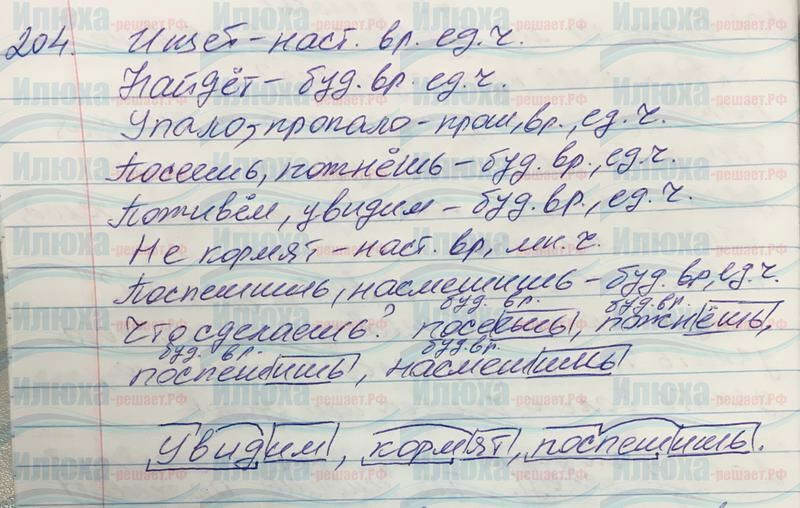 204. Ищет - наст. вр. ед. ч.
Найдёт - буд. вр. ед. ч.
Упало, пропало - прош. вр., ед. ч.
Посеешь, пожнёшь - буд. вр., ед. ч.
Поживём, увидим - буд. вр., ед. ч.
Не кормят - наст. вр., мн. ч.
Поспешишь, насмешишь - буд. вр., ед. ч.
буд. вр. буд. вр.
Что сделаешь? посеешь, пожнёшь,
буд. вр. буд. вр.
поспешишь, насмешишь
увидим, кормят, поспешишь.
Илюха-решает.РФ